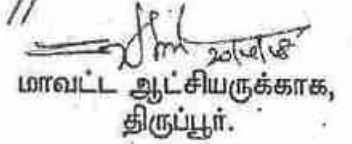 மாவட்ட ஆட்சியருக்காக,
திருப்பூர்.